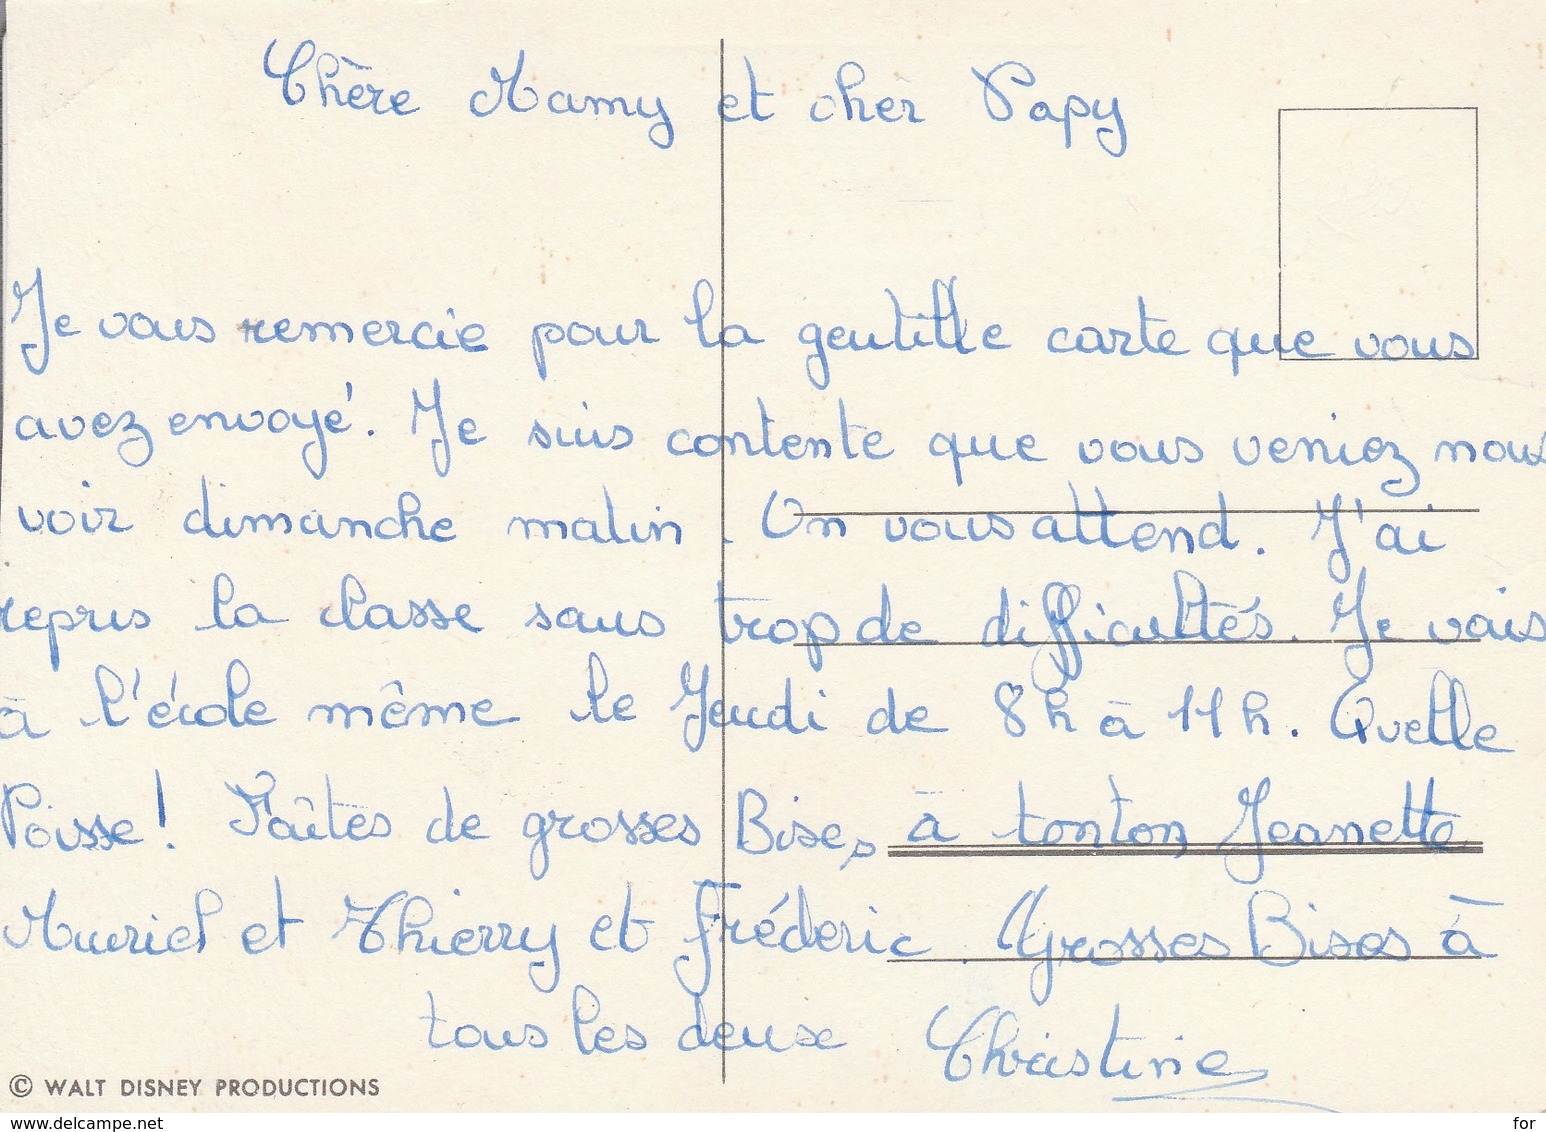 Chère Mamy et cher Papy
Je vous remercie pour la gentille carte que vous
avez envoyé. Je suis contente que vous veniez nous
voir dimanche matin. On vous attend. J'ai
repris la classe sans trop de difficultés. Je vais
à l'école même le Jeudi de 8h à 11h. Quelle
Poisse! Faîtes de grosses Bises à tonton, Jeanette
Muriel et Thierry et Fréderic. Grosses Bises à
tous les deux Christine
© WALT DISNEY PRODUCTIONS
www.delcampe.net
for